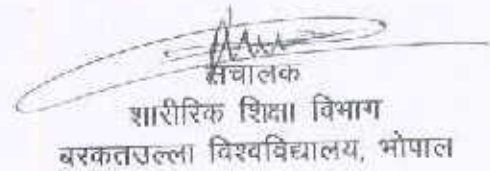 संचालक
शारीरिक शिक्षा विभाग
बरकतउल्ला विश्वविद्यालय, भोपाल